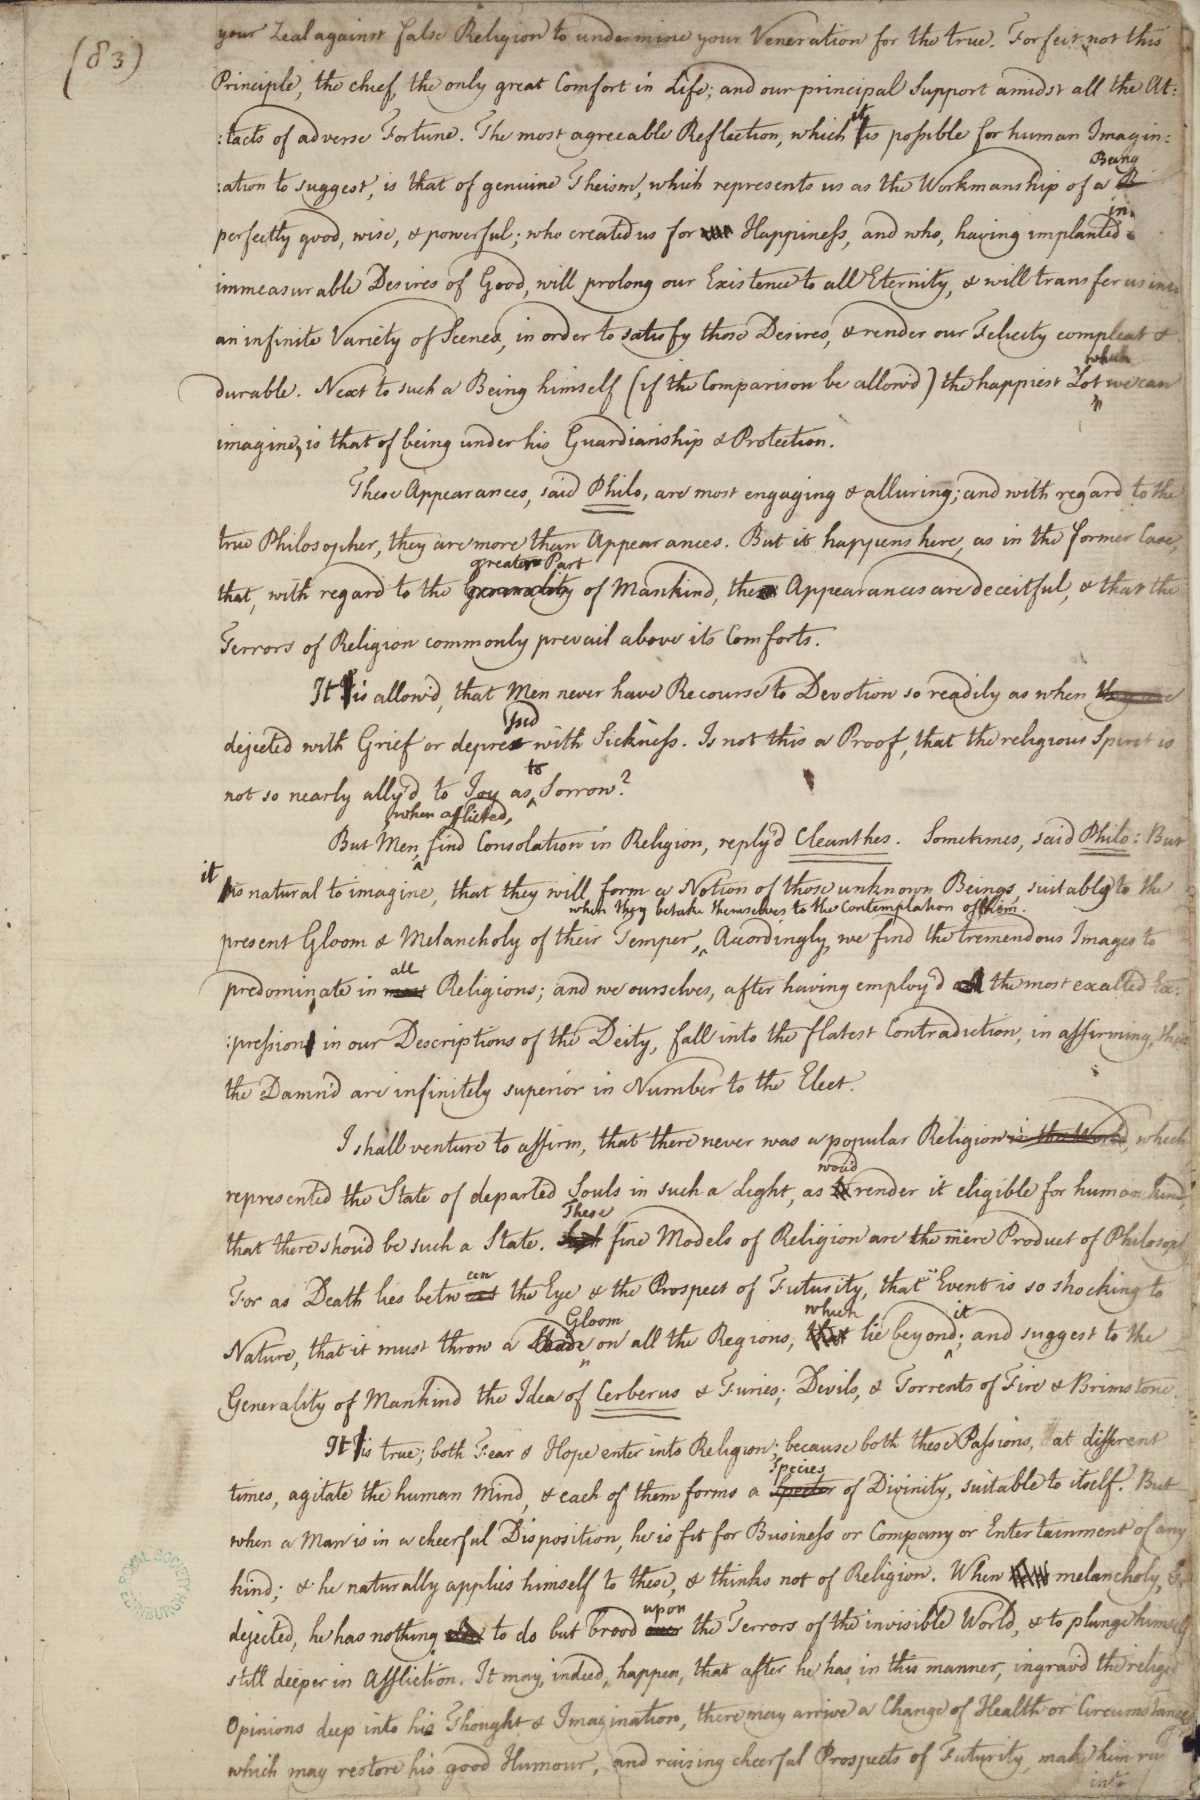 (83)
your Zeal against false Religion to undermine your Veneration for the true. Forfeit not this
Principle, the chief, the only great Comfort in Life; and our principal Support amidst all the At:
:tacks of adverse Fortune. The most agreeable Reflection, which it is possible for human Imagin:
:ation to suggest, is that of genuine Theism, which represents us as the Workmanship of a Being
perfectly good, wise, & powerful; who created us for Happiness, and who, having implanted in
immeasurable Desires of Good, will prolong our Existence to all Eternity, & will transfer us into
an infinite Variety of Scenes, in order to satisfy those Desires, & render our Felicity compleat &
durable. Next to such a Being himself (if the Comparison be allow'd) the happiest Lot which we can
imagine, is that of being under his Guardianship & Protection.
These Appearances, said Philo, are most engaging & alluring; and with regard to the
true Philosopher, they are more than Appearances. But it happens here, as in the former Case,
that, with regard to the greater Part of Mankind, the Appearances are deceitful, & that the
Terrors of Religion commonly prevail above its Comforts.
It is allow'd, that Men never have Recourse to Devotion so readily as when
dejected with Grief or deprest with Sickness. Is not this a Proof, that the religious Spirit is
not so nearly ally'd to Joy as to Sorrow?
But Men, when afflicted, find Consolation in Religion, reply'd Cleanthes. Sometimes, said Philo: But
it is natural to imagine, that they will form a Notion of those unknown Beings, suitably to the
present Gloom & Melancholy of their Temper, when they betake themselves to the Contemplation of them. Accordingly, we find the tremendous Images to
predominate in all Religions; and we ourselves, after having employ'd the most exalted Ex:
:pression in our Descriptions of the Deity, fall into the flatest Contradiction, in affirming, that
the Damn'd are infinitely superior in Number to the Elect.
I shall venture to affirm, that there never was a popular Religion which
represented the State of departed Souls in such a Light, as wou'd render it eligible for human kind,
that there shou'd be such a State. These fine Models of Religion are the mere Product of Philosophy
For as Death lies between the Eye & the Prospect of Futurity, that Event is so shocking to
Nature, that it must throw a Gloom on all the Regions, which lie beyond it; and suggest to the
Generality of Mankind the Idea of Cerberus & Furies; Devils, & Torrents of Fire & Brimstone.
It is true; both Fear & Hope enter into Religion; because both these Passions, at different
times, agitate the human Mind, & each of them forms a Species of Divinity, suitable to itself. But
when a Man is in a cheerful Disposition, he is fit for Business or Company or Entertainment of any
kind; & he naturally applies himself to these, & thinks not of Religion. When melancholy, &
dejected, he has nothing to do but brood upon the Terrors of the invisible World, & to plunge himself
still deeper in Affliction. It may, indeed, happen, that after he has, in this manner, ingrav'd the religious
Opinions deep into his Thought & Imagination, there may arrive a Change of Health or Circumstances
which may restore his good Humour, and raising cheerful Prospects of Futurity, make him run
into
ROYAL SOCIETY EDINBURGH